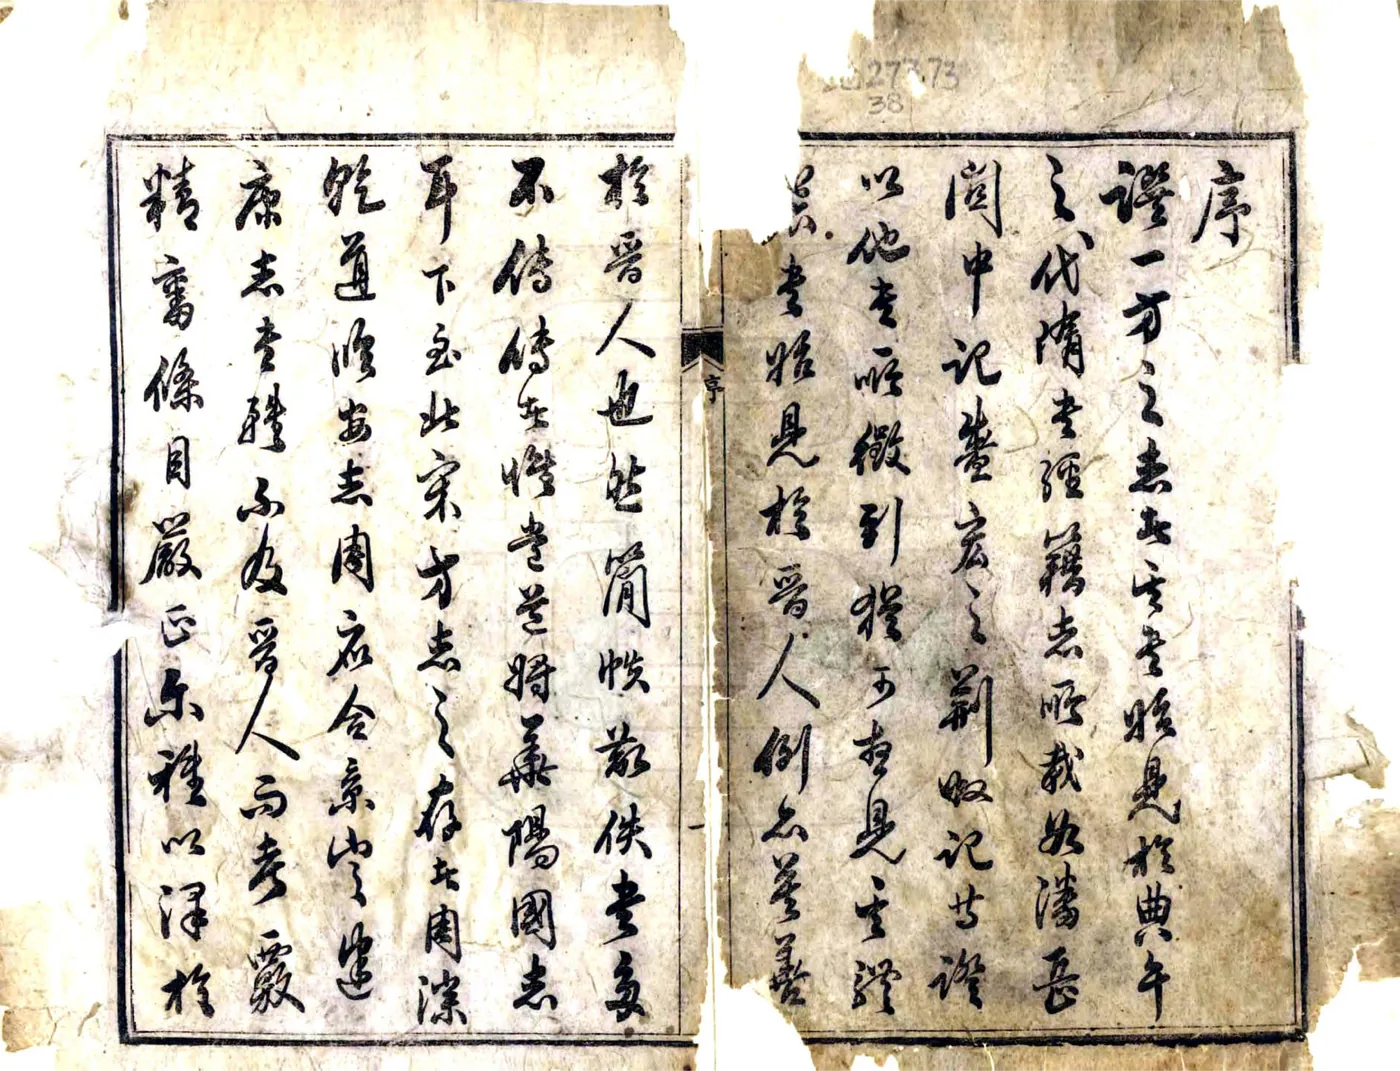 序
譔一方之志者其書始見於典午
之代隋書經籍志所載如潘岳
關中記盛宏之荊州記
以他書所徵引猶可想見其體
書始見於晉人例亦莫善
序
一
於晉人也然簡帙散佚書多
不傳傳者惟常道將華陽國志
耳下至北宋方志之存者周淙
乾道臨安志周應合景定建
康志書雖不及晉人而考覈
精審條目嚴正亦 以 於
277.73
38